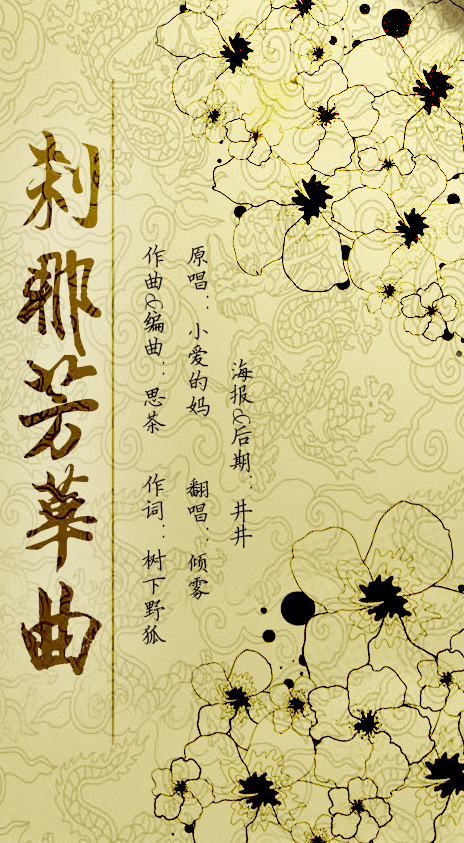 刹那芳華曲
作曲&编曲：思茶 作词：树下野狐
原唱：小爱的妈 翻唱：倾雾
海报&后期：井井